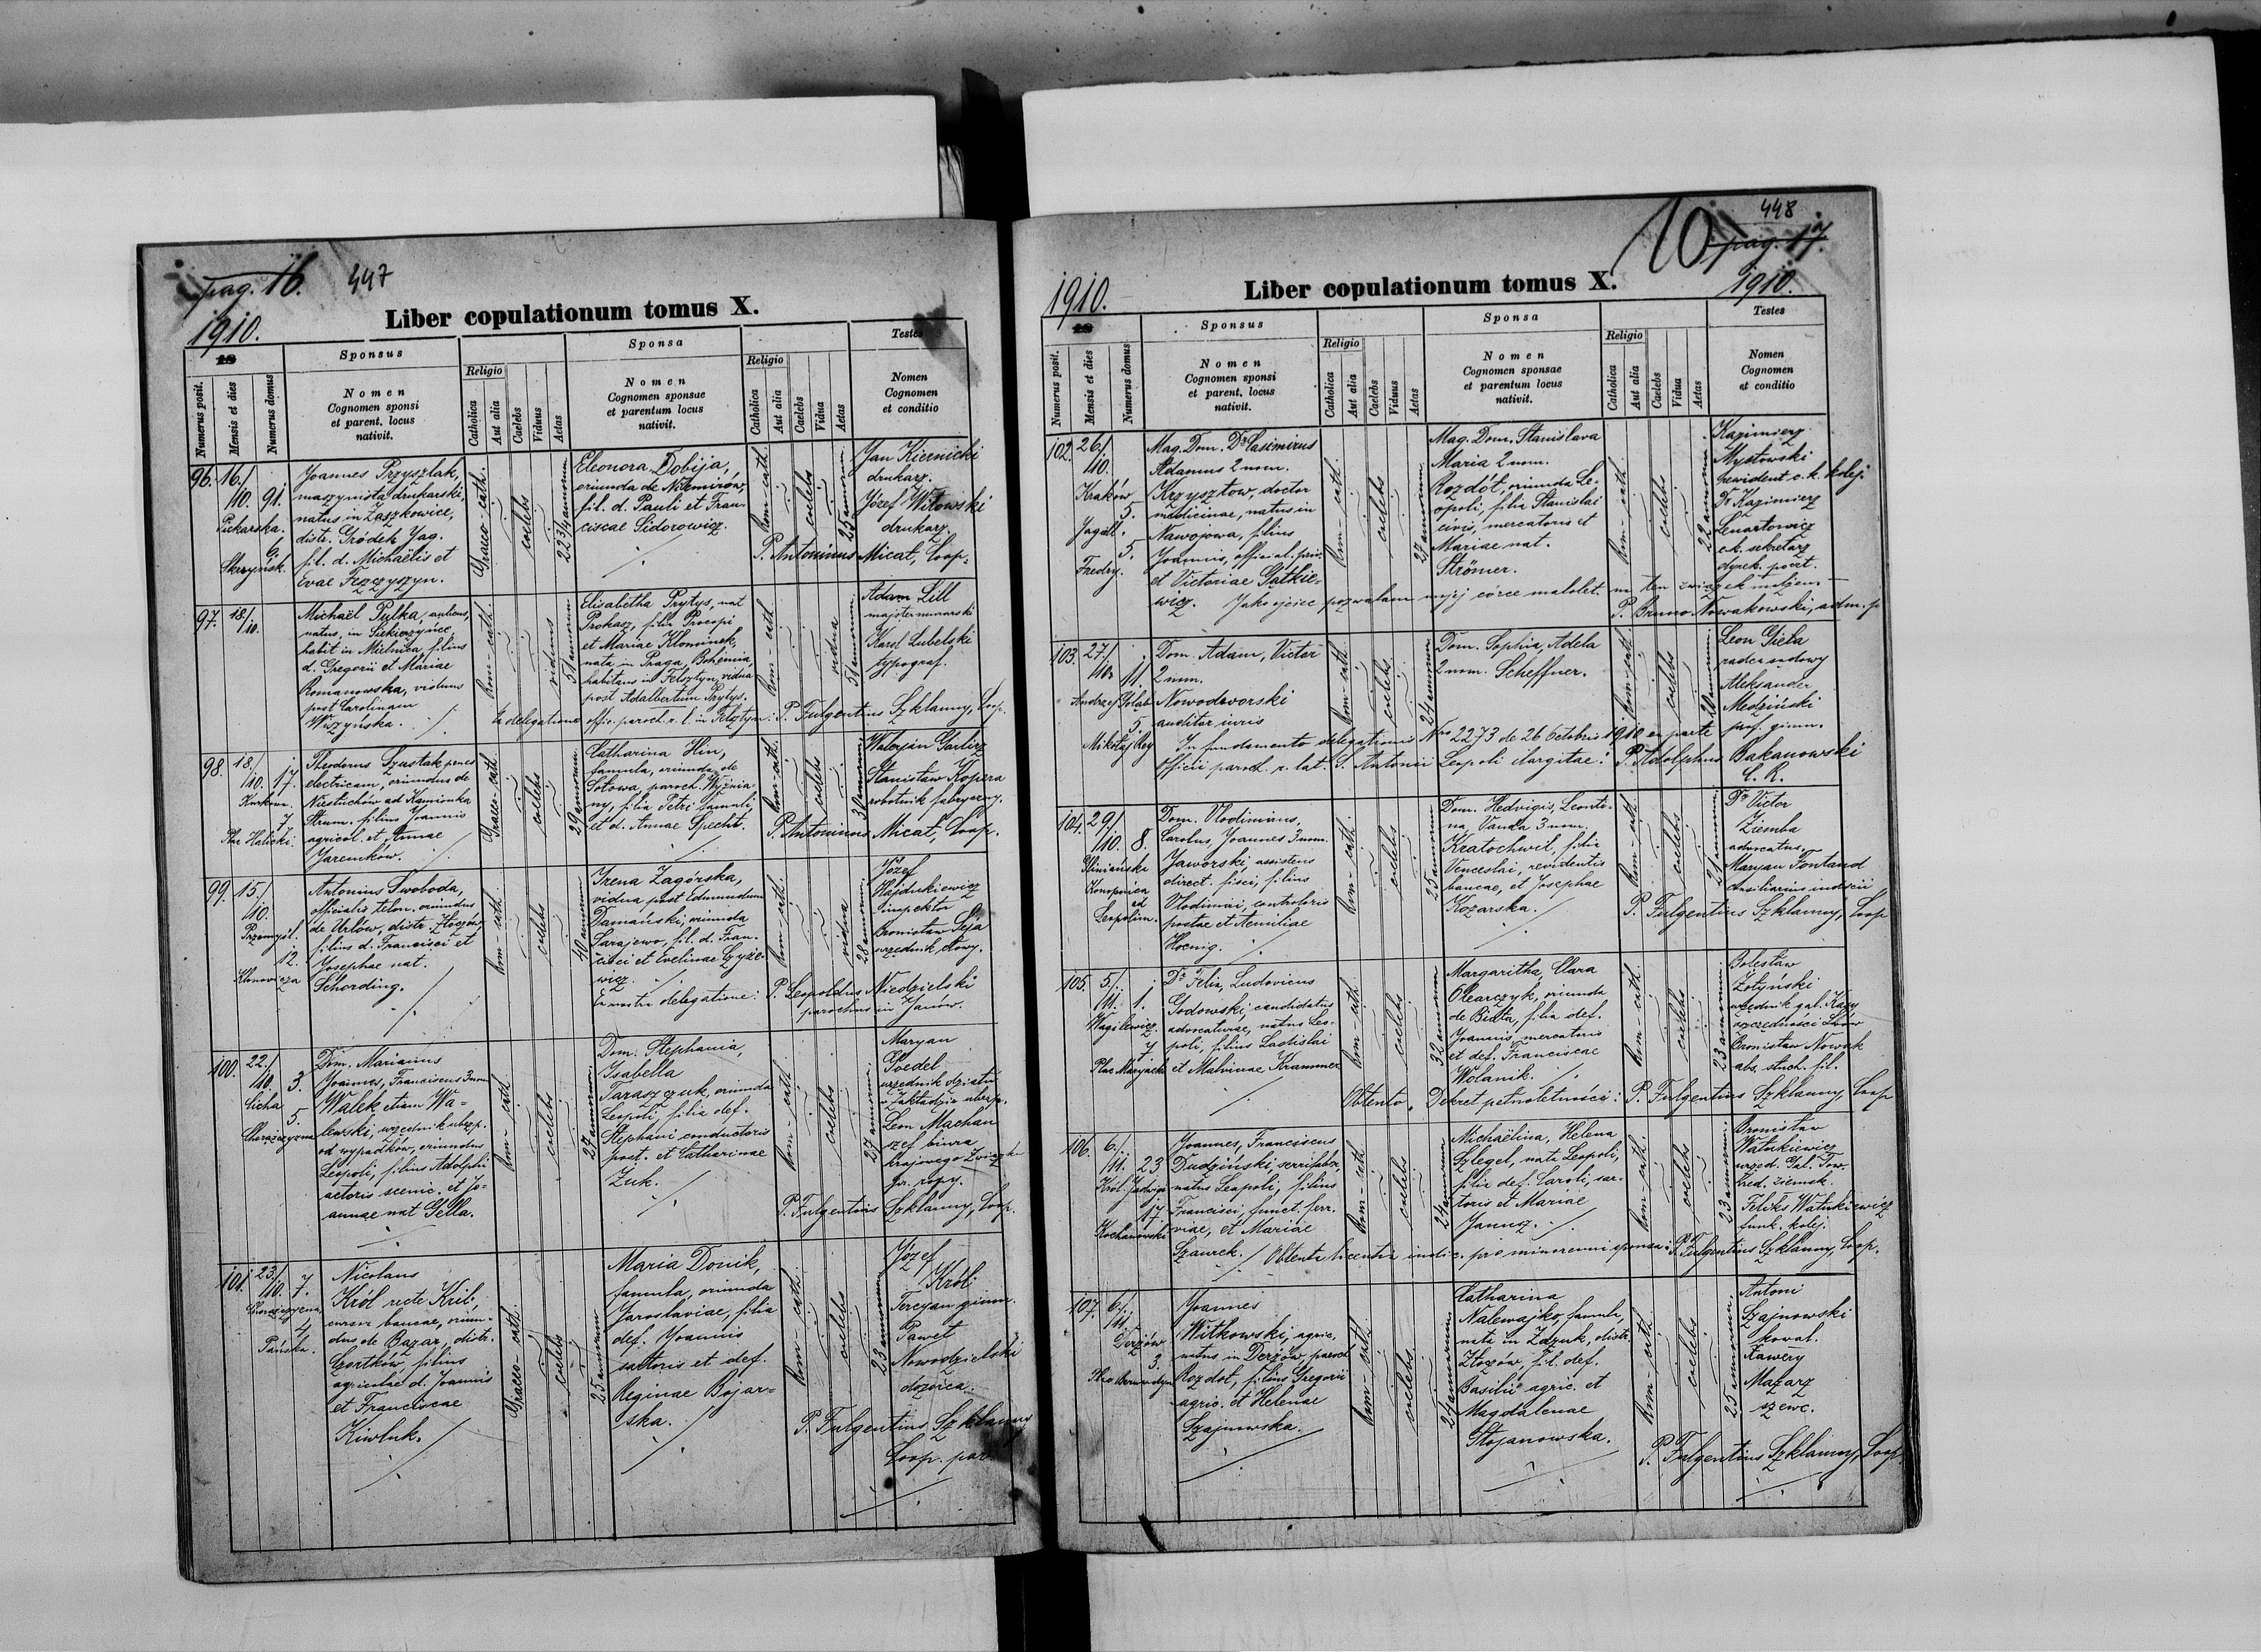 pag. 16. 447
Liber copulationum tomus X.
1910.
18
Sponsus
Sponsa
Testes
Numerus posit.
Mensis et dies
Numerus domus
Nomen
Cognomen sponsi
et parent. locus
nativit.
Religio
Catholica
Aut alia
Caelebs
Viduus
Aetas
Nomen
Cognomen sponsae
et parentum locus
nativit.
Religio
Catholica
Aut alia
Caelebs
Vidua
Aetas
Nomen
Cognomen
et conditio
96. 16./10. 91.
Piekarska.
9.
Skrzyńsk.
Joannes Przyszlak,
maszynista drukarski,
natus in Laszkowice,
distr. Gródek Jag.
fil. d. Michaëlis et
Evae
Graeco-cath.
caelebs
22 3/4 annorum
Eleonora Dobija,
oriunda de Niemirów,
fil. d. Pauli et Fran-
ciscae Sidorowicz.
Rom-cath.
caelebs
25 annorum
Jan Kiernicki
drukarz.
Józef Witowski
drukarz.
P. Antoninus Micat, Coop.
97. 18./10.
Michaël Pulka,
natus in Siekierzyńce
habit in Mielnica, filius
d. Gregorii et Mariae
Romanowska, viduus
post Carolinam
Wyszyńska.
Rom-cath.
viduus
51 annorum
Elisabetha Prytys, nat
Prokasz, filia Procopi
et Mariae Klominek,
nata in Praga, Bohemia,
habitans in Felsztyn, vidua
post Adalbertum Prytys.
Rom-cath.
vidua
51 annorum
Adam Lill
majster murarski
Karol Lubelski
typograf.
Ex delegatione offic. paroch. r. l. in Felsztyn: P. Fulgentius Szklanny, Coop.
98. 18./10. 17.
Kurkowa.
7
Plac Halicki.
Theodorus Szustak penes
electricam, oriundus de
Niesłuchów ad Kamionka
Strum. filius Joannis
agricol. et Annae
Jaremków.
Graeco-cath.
caelebs
29 annorum
Catharina Hin,
famula, oriunda de
Sołowa, paroch. Wyżnia-
ny, filia Petri famuli,
et d. Annae Specht.
Rom-cath.
caelebs
30 annorum
Waleryan Garlicz
Stanisław Kopera
robotnik fabryczny.
P. Antoninus Micat, Coop.
99. 15./10.
Przemyśl.
12.
Klonowicza
Antonius Swoboda,
officialis telon. oriundus
de Urlów, distr. Złoczów,
filius d. Francisci et
Josephae nat.
Schording.
Rom-cath.
caelebs
40 annorum
Irena Zagórska,
vidua post Edmundum
Damański, oriunda
Sarajewo, fil. d. Fran-
cisci et Evelinae Czyże-
wicz.
Rom-cath.
vidua
28 annorum
Józef
Hajdukiewicz
inspektor
Bronisław Seja
urzędnik cłowy.
Ex nostra delegatione: P. Leopoldus Niedzielski
parochus in Janów.
100. 22./10. 3.
Cicha
5.
Chorążczyzna
Dom. Marianus
Joannes, Franciscus 3 nom
Walek etiam Wa-
lewski, urzędnik ubezp.
od wypadków, oriundus
Leopoli, filius Adolphi
actoris scenic. et Jo-
annae nat Gella.
Rom-cath.
caelebs
27 annorum
Dom. Stephania,
Isabella
Taraszczuk, oriunda
Leopoli, filia def.
Stephani conductoris
poct. et Catharinae
Żuk.
Rom-cath.
caelebs
27 annorum
Maryan
Goedel
urzędnik dział.
Zakładzie ubezp.
Leon Machan
szef biura
krajowego Związku
pr. ropy.
P. Fulgentius Szklanny, Coop.
101. 23./10. 7.
Chorążczyzna
4
Pańska.
Nicolaus
Król recte Kril,
cursor bancae, oriun-
dus de Bazar, distr.
Czortków, filius
agricolae d. Joannis
et Franciscae
Kiwluk.
Graeco-cath.
caelebs
25 annorum
Maria Donik,
famula, oriunda
Jaroslaviae, filia
def. Joannis
sartoris et def.
Reginae Bojar-
ska.
Rom-cath.
caelebs
23 annorum
Józef
Król
Tercyan gimn.
Paweł
Nowodzielski
dozorca.
P. Fulgentius Szklanny
Coop. par
10 448
pag. 17.
1910. Liber copulationum tomus X. 1910.
18
Sponsus
Sponsa
Testes
Numerus posit.
Mensis et dies
Numerus domus
Nomen
Cognomen sponsi
et parent. locus
nativit.
Religio
Catholica
Aut alia
Caelebs
Viduus
Aetas
Nomen
Cognomen sponsae
et parentum locus
nativit.
Religio
Catholica
Aut alia
Caelebs
Vidua
Aetas
Nomen
Cognomen
et conditio
102. 26./10.
Kraków
5.
Jagiell.
5.
Fredry.
Mag. Dom. Dr Casimirus
Adamus 2 nom.
Krzysztow, doctor
medicinae, natus in
Nawojowa, filius
Joannis, official. priv.
et Victoriae Gatkie-
wicz.
Rom-cath.
caelebs
27 annorum
Mag. Dom. Stanislava
Maria 2 nom.
Rozdół, oriunda Le-
opoli, filia Stanislai
civis, mercatoris et
Mariae nat.
Strömer.
Rom-cath.
caelebs
22 annorum
Kazimierz
Mysłowski
rewident c. k. kolej.
Dr Kazimierz
Lenartowicz
c.k. sekretarz
dyrek. poczt.
Jako ojciec pozwalam mojej córce małolet. na ten związek małżens.
P. Bruno Nowakowski, adm. p
103. 27./10. 11.
Andrzej Potock
5
Mikołaj Rey
Dom. Adam, Victor
2 nom.
Nowodworski
auditor iuris
Rom-cath.
caelebs
24 annorum
Dom. Sophia, Adela
2 nom. Scheffner.
Rom-cath.
caelebs
20 annorum
Leon Gieła
radca sądowy
Aleksander
Medziński
prof. gimn.
In fundamento delegationis Nro 2273 de 26 Octobris 1910 ex parte
Officii paroch. r. lat. S. Antonii Leopoli elargitae: P. Adolphus Bakanowski
C. R.
104. 29./10. 8.
Gliniańska
Krupnica
ad
Leopolim.
Dom. Vlodimirus,
Carolus, Joannes 3 nom.
Jaworski assistens
direct. fisci, filius
Vlodimiri, controloris
postae et Aemiliae
Hoenig.
Rom-cath.
caelebs
25 annorum
Dom. Hedvigis, Leonti-
na, Vanda 3 nom.
Kratochwil, filia
Venceslai, revidentis
bancae, et Josephae
Kozarska.
Rom-cath.
caelebs
21 annorum
Dr Victor
Ziemba
advocatus.
Maryan Fontand
Consiliarius
P. Fulgentius Szklanny, Coop
105. 5./11. 1.
Wagilewicz.
7
Plac Maryacki
Dr Felix, Ludovicus
Godowski, candidatus
advocaturae, natus Leo-
poli, filius Ladislai
et Malvinae Krammer
Rom-cath.
caelebs
32 annorum
Margaritha, Clara
Olearczyk, oriunda
de Biała, filia def.
Joannis, mercatoris
et def. Franciscae
Wolanik.
Rom-cath.
caelebs
23 annorum
Bolesław
Żołyński
urzędnik gal. Kasy
oszczędności Lwów
Bronisław Nowak
abs. słuch. fil.
Obtento Dekret pełnoletności: P. Fulgentius Szklanny, Coop
106. 6./11. 23
Król. Jadwiga
17.
Kochanowski
Joannes, Franciscus
Dudziński, serifaber,
natus Leopoli, filius
Francisci, funct. ferr.
viae, et Mariae
Szaurek.
Rom-cath.
caelebs
24 annorum
Michaëlina, Helena
Szlegel, nata Leopoli,
filia def. Caroli, sar-
toris et Mariae
Janusz.
Rom-cath.
caelebs
23 annorum.
Bronisław
Watukiewicz
urzęd. Gal. Tow.
Kred. ziemsk.
Feliks Watukiewicz
funk. kolej.
Obtenta licentia iudic. pro minorenni sponsa: P. Fulgentius Szklanny, Coop.
107. 6./11.
Derżów
3.
Plac Bernardyn
Joannes
Witkowski, agric,
natus in Derżów, paroch
Rozdoł, filius Gregorii
agric. et Helenae
Szajnowska.
Rom-cath.
caelebs
24 annorum
Catharina
Nalewajko, famula,
nata in Zazuk, distr.
Złoczów, fil. def.
Basilii agric. et
Magdalenae
Stojanowska.
Rom-cath.
caelebs
25 annorum.
Antoni
Szajnowski
kowal.
Xawery
Mazarz
szewc.
P. Fulgentius Szklanny, Coop.